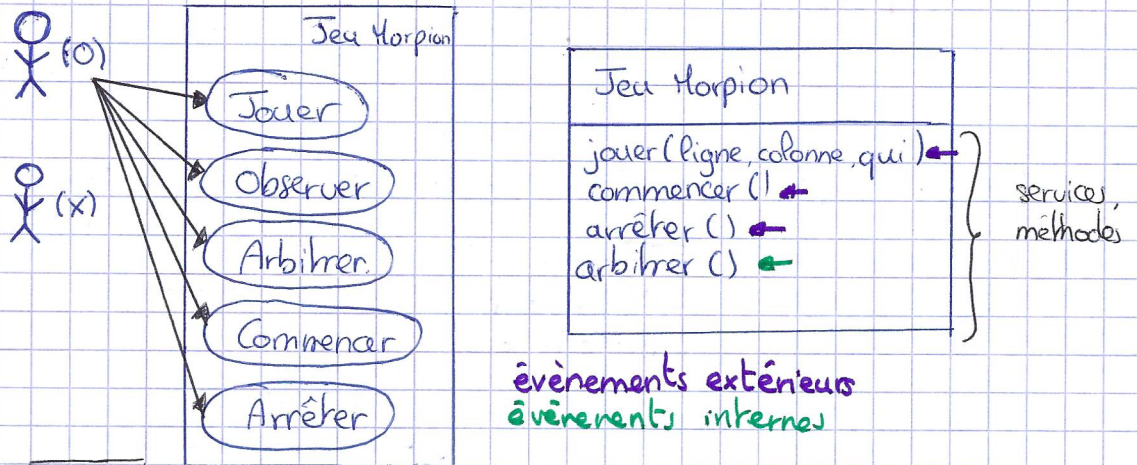 (O)
(X)
Jeu Morpion
Jouer
Observer
Arbitrer.
Commencer
Arrêter
Jeu Morpion
jouer (ligne, colonne, qui)
commencer ()
arrêter ()
arbitrer ()
services,
méthodes
évènements extérieurs
évènements internes